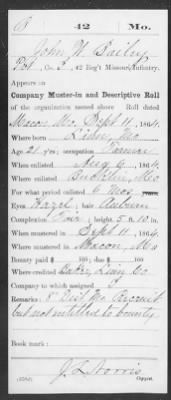 B 42 Mo.
John W. Bailey
Co. 42 Reg't Missouri Infantry.
Appears on
Company Muster-in and Descriptive Roll
of the organization named above. Roll dated
Macon, Mo. Sept 11, 1864.
Where born Mo
Age 21 y'rs; occupation Farmer
When enlisted Aug 6, 1864.
Where enlisted Mo
For what period enlisted 6 mos
Eyes Hazel; hair Auburn
Complexion Fair; height 5 ft. 10 in.
When mustered in Sept 11, 1864.
Where mustered in Macon, Mo
Bounty paid $ 100; due $ 100
Where credited Co
To which company assigned
Remarks: 8" Dist Mo Recruit
but not entitled to bounty
Book mark:
J. L. Norris
Copyist.